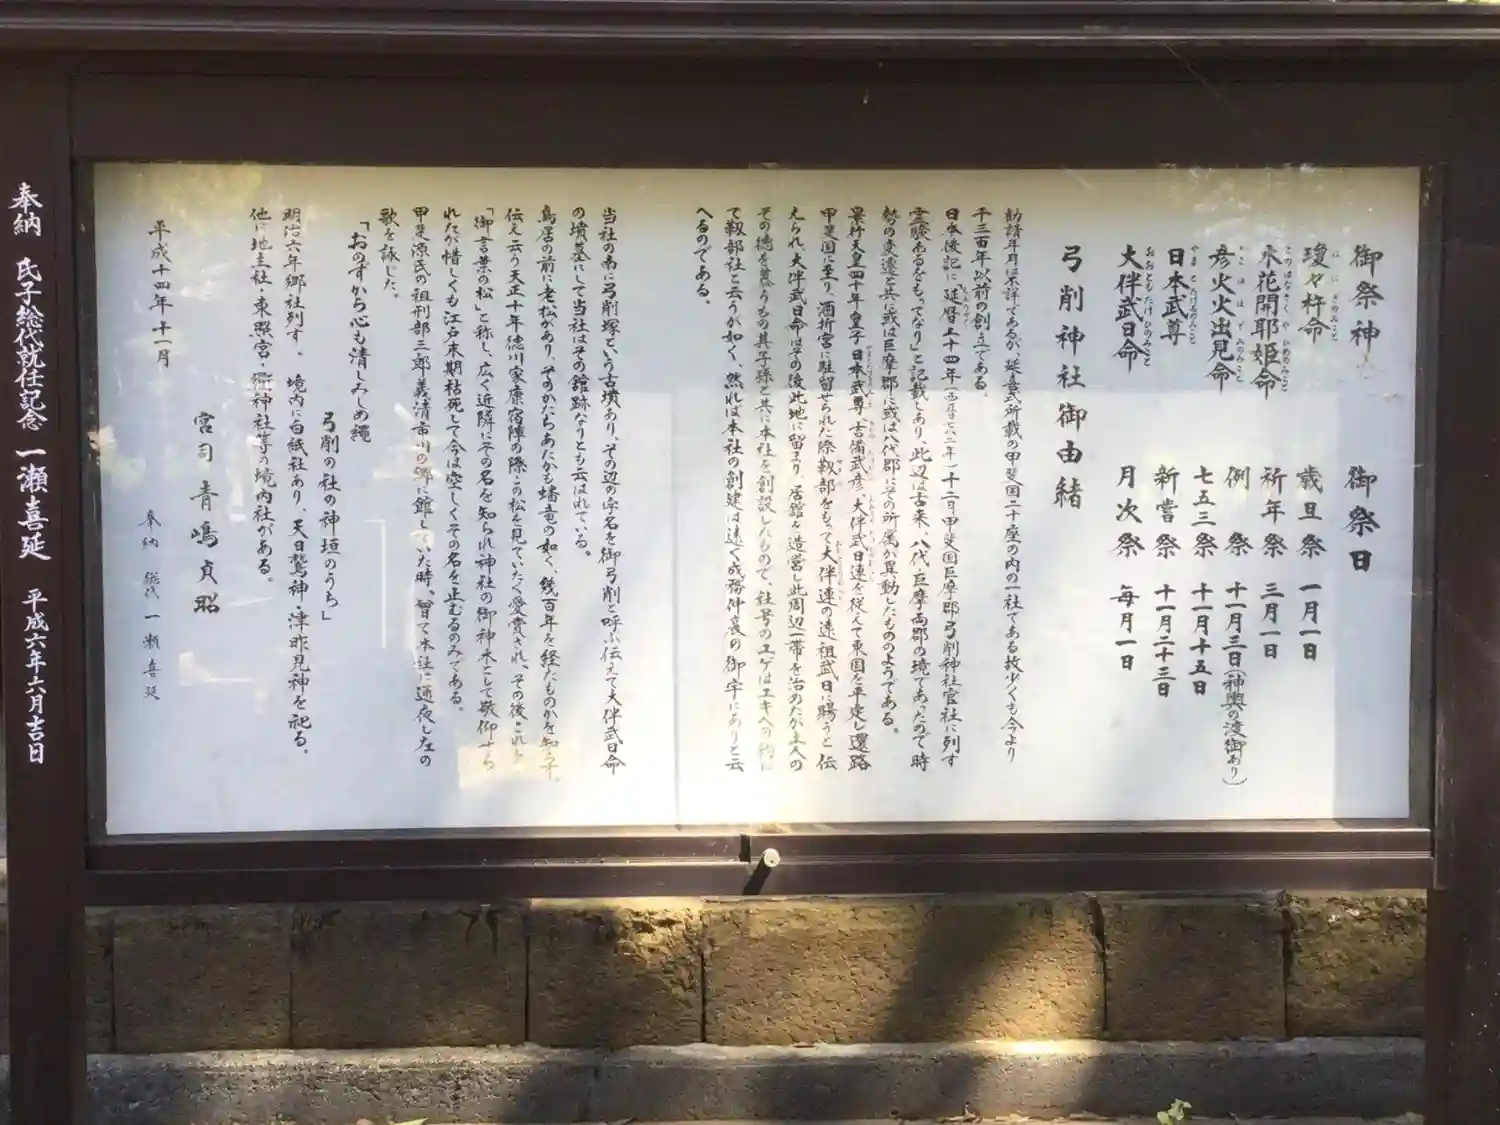 御祭神
瓊々杵命
木花開耶姫命
彦火火出見命
日本武尊
大伴武日命
御祭日
歳旦祭 一月一日
祈年祭 三月一日
例祭 十一月三日(神輿の渡御あり)
七五三祭 十一月十五日
新嘗祭 十一月二十三日
月次祭 毎月一日
弓削神社御由緒
勧請年月は不詳であるが、延喜式所載の甲斐国二十座の内の一社である故少くも今より
千三百年以前の創立である。
日本後記に延暦二十四年(西暦七八二年)十二月甲斐国巨摩郡弓削神社官社に列す
霊験あるをもってなり」と記載しあり、此辺は古来、八代巨摩両郡の境であったので時
勢の変遷と共に或は巨摩郡に或は八代郡にその所属が異動したもののようである。
景行天皇四十年皇子日本武尊、吉備武彦、大伴武日連を従えて東国を平定し還路
甲斐国に至り、酒折宮に駐留せられた際靱部をもって大伴連の遠祖武日に賜うと伝
えられ、大伴武日命はその後此地に留まり、居館を造営し此周辺一帯を治めたが土人の
その徳を慕うもの其子孫と共に本社を創設したもので、社号のユゲはユキヘの約に
て靱部社と云うが如く、然れば本社の創建は遠く成務仲哀の御宇にありと云
へるのである。
当社の南に弓削塚という古墳あり、その辺の字名を御弓削と呼ぶ伝えて大伴武日命
の墳墓にして当社はその館跡なりとも云はれている。
鳥居の前に老松があり、そのかたちあたかも蟠竜の如く、幾百年を経たものかを知らず。
伝え云う天正十年徳川家康宿陣の際、この松を見ていたく愛賞され、その後、これを
「御言葉の松」と称し、広く近隣にその名を知られ神社の御神木として敬仰せら
れたが惜しくも江戸末期枯死して今は空しくその名を止むるのみである。
甲斐源氏の祖刑部三郎義清市川の郷に館していた時、曽て本社に通夜し左の
歌を詠じた。
「おのずから心も清ししめ縄
弓削の社の神垣のうち」
明治六年郷社列す。境内に白紙社あり、天日鷲神・津咋見神を祀る。
他に地主社・東照宮・衢神社等の境内社がある。
平成十四年十一月
宮司 青嶋貞昭
奉納 総代 一瀬喜延
奉納 氏子総代就任記念 一瀬喜延 平成六年六月吉日